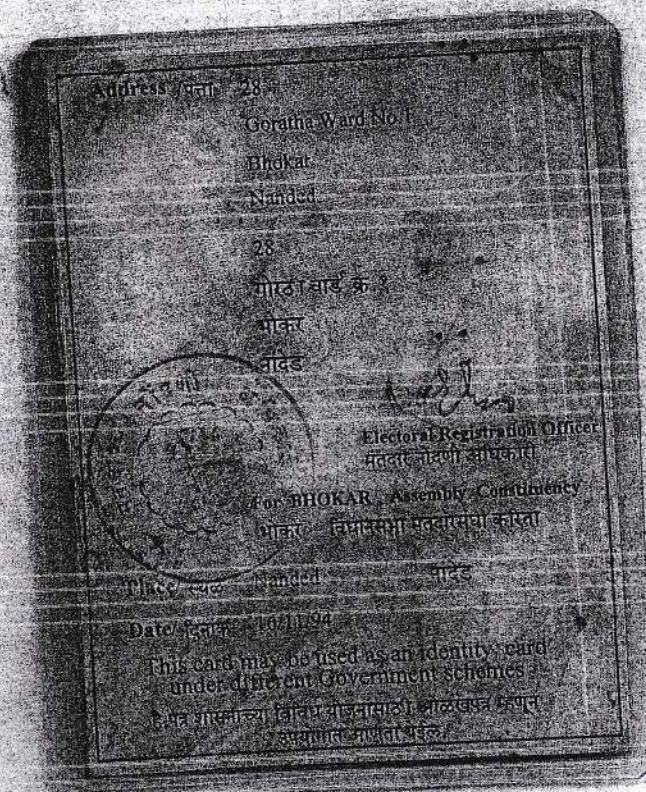 Address /पत्ता 28
Goratha Ward No.1
Bhokar
Nanded
28
गोरठा वार्ड क्र १
भोकर
नांदेड
Electoral Registration Officer
मतदार नोंदणी अधिकारी
For BHOKAR Assembly Constituency
भोकर विधानसभा मतदारसंघा करिता
Place/ स्थळ Nanded नांदेड
Date/ दिनांक
This card may be used as an identity card
under different Government schemes
हे पत्र शासनाच्या विविध योजनासाठी ओळखपत्र म्हणून
उपयोगात आणता येईल